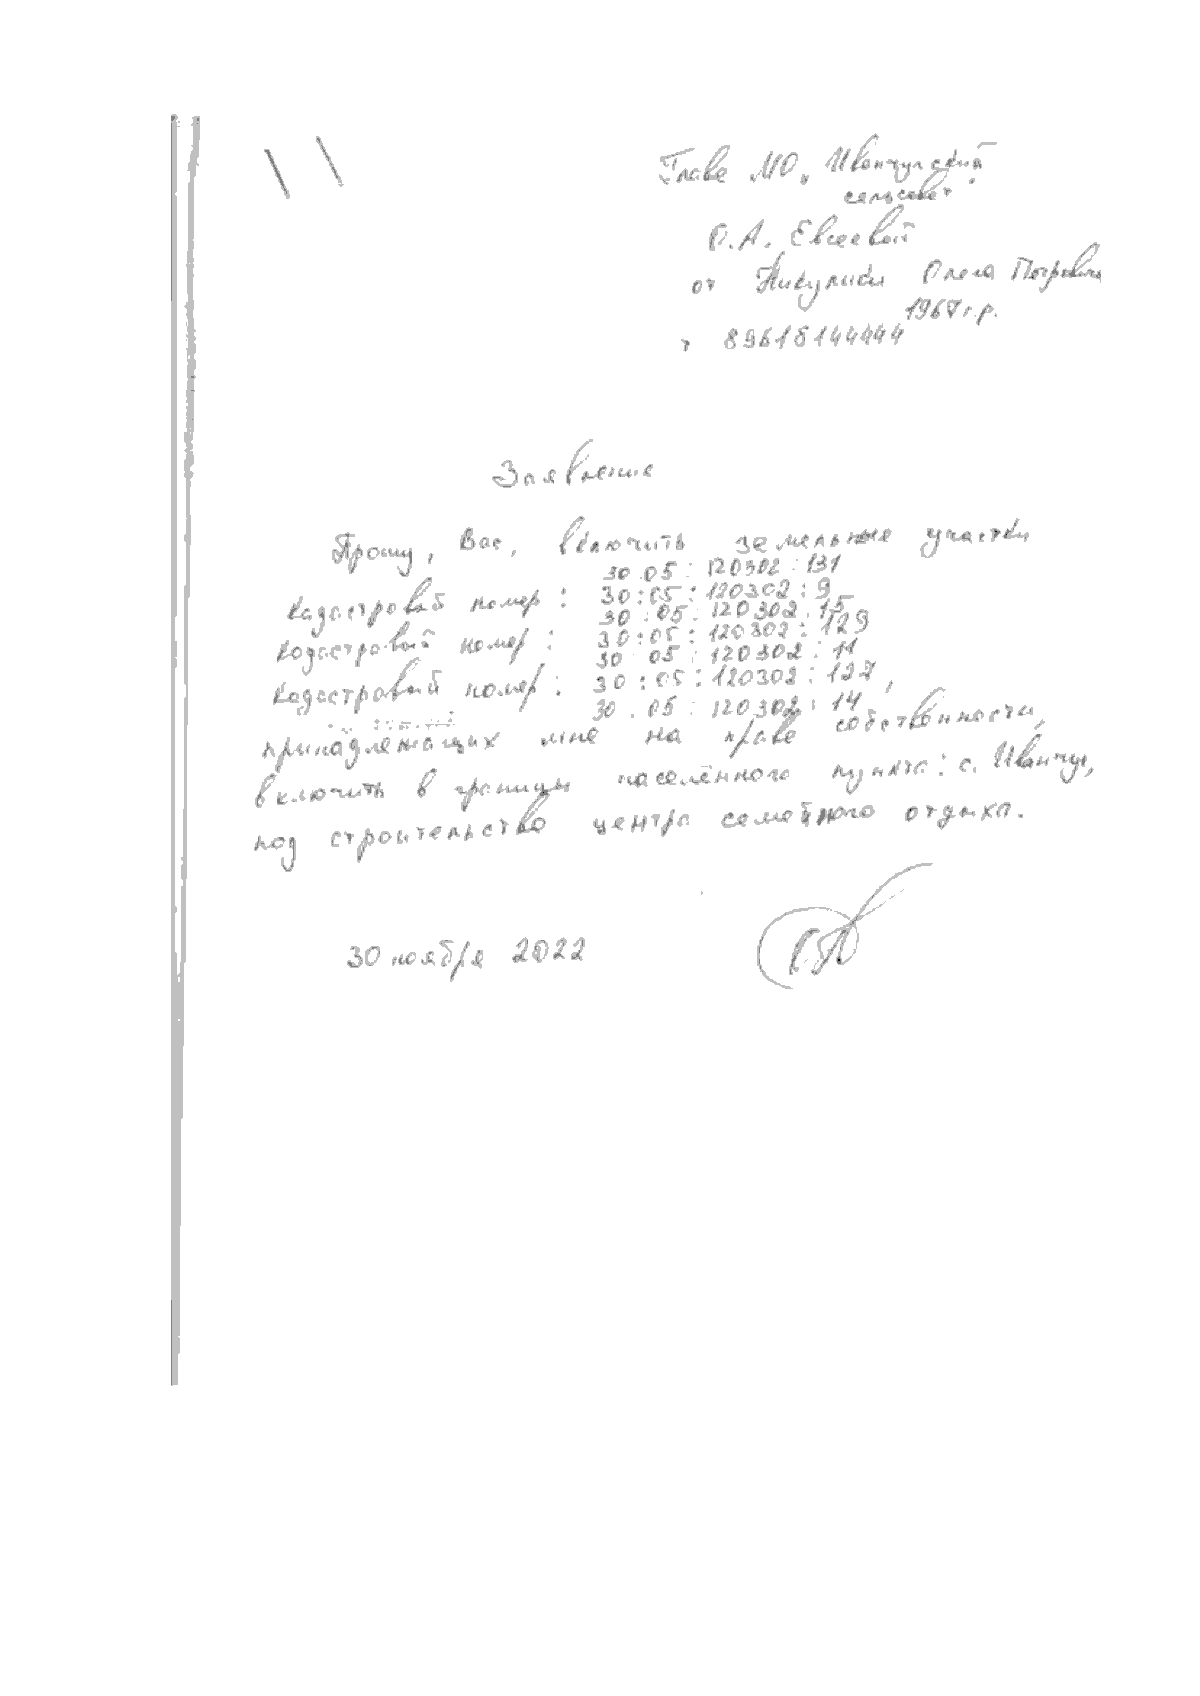 Главе МО „Иванчугский
сельсовет"
О.А. Евсеевой
от Никулина Олега Петровича
1967 г.р.
т 89618144444
Заявление
Прошу, Вас, включить земельные участки
30 05 : 120302 : 131
кадастровый номер : 30:05:120302:9
30 : 05 : 120302 : 15
кадастровый номер : 30:05:120302:129
30 05 : 120302 : 11
кадастровый номер : 30:05:120302:127,
30 . 05 : 120302 : 14
принадлежащих мне на праве собственности,
включить в границы населённого пункта: с. Иванчуг,
под строительство центра семейного отдыха.
30 ноября 2022